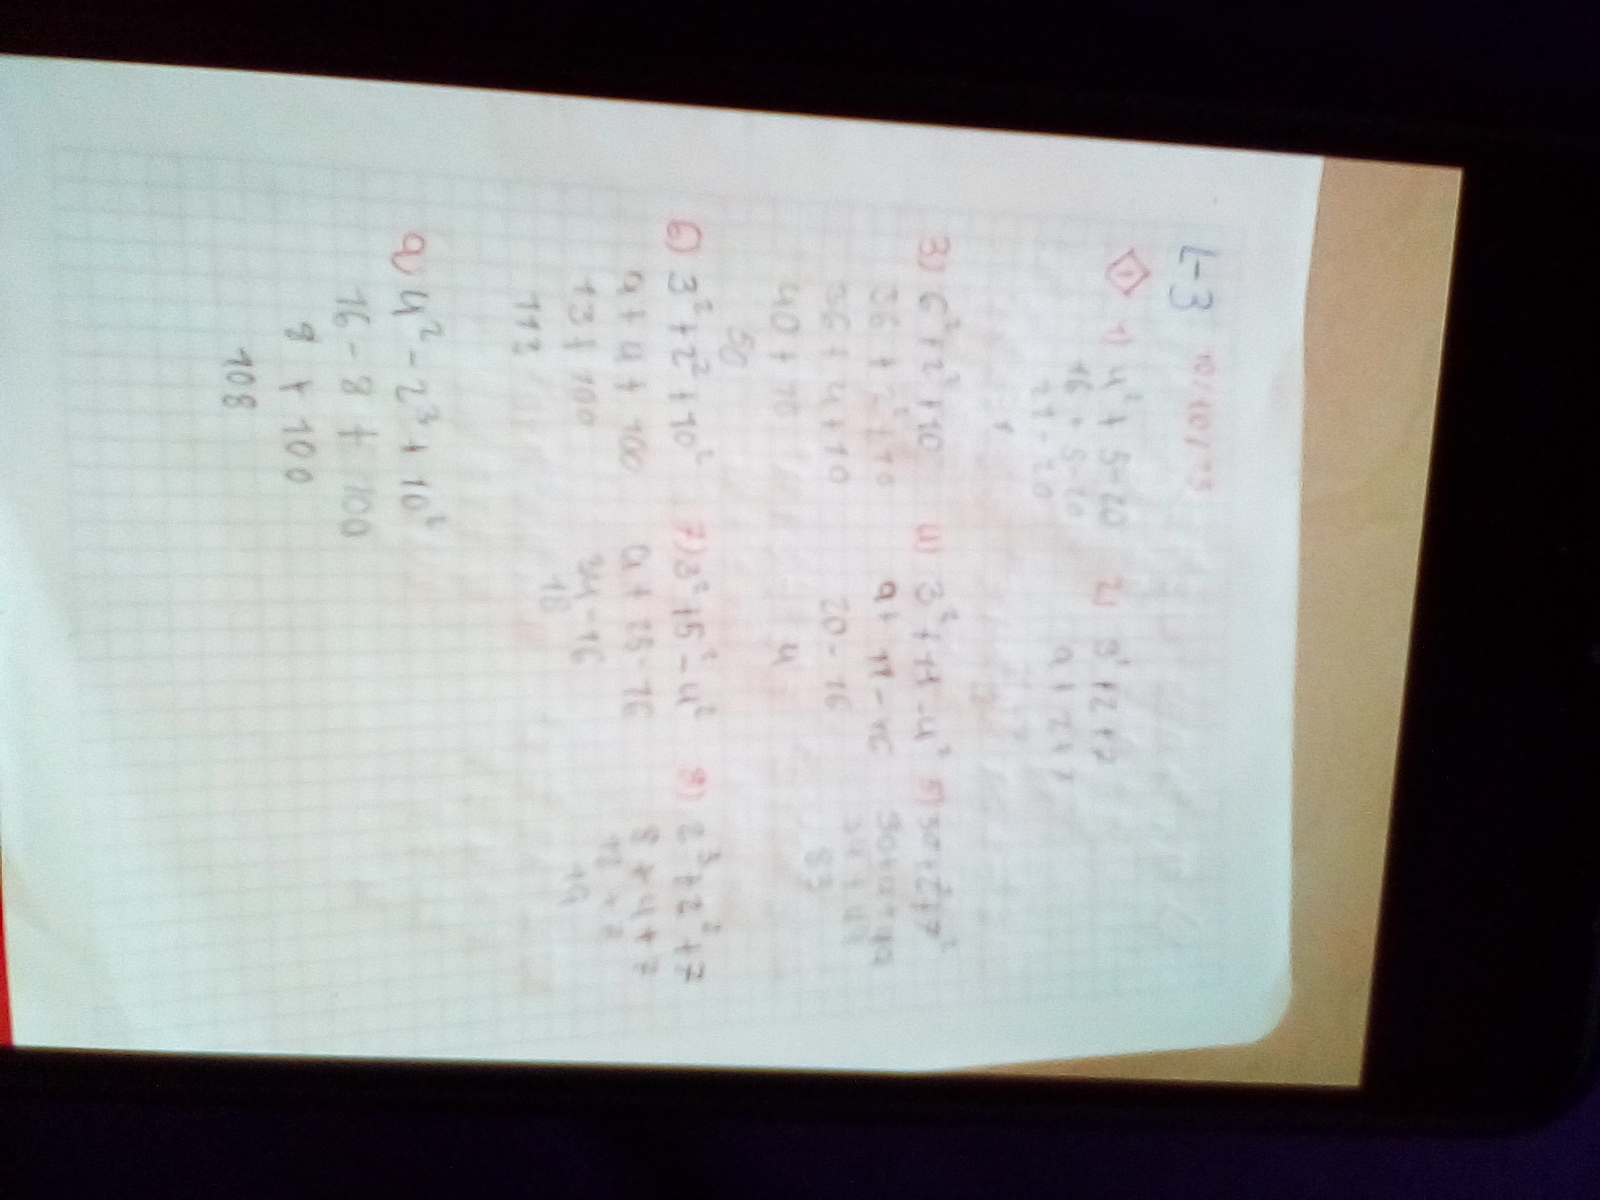 L-3 10/10/23
1) 4² + 5 - 20
16 + 5 - 20
21 - 20
1
2) 3² + 2 + 7
9 + 2 + 7
3) 6² + 2² + 10
36 + 2² + 10
36 + 4 + 10
40 + 10
50
4) 3² + 11 - 4²
9 + 11 - 16
20 - 16
4
6) 3² + 2² + 10²
9 + 4 + 100
13 + 100
113
7) 3² + 5² - 4²
9 + 25 - 16
34 - 16
18
8) 2³ + 2² + 7
8 + 4 + 7
12 + 7
19
9) 4² - 2³ + 10²
16 - 8 + 100
8 + 100
108